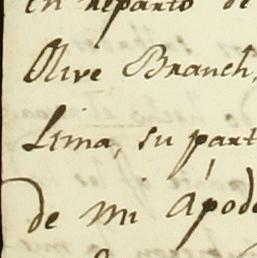 en reparto de
Olive Branch,
Lima, su part
de mi Apode